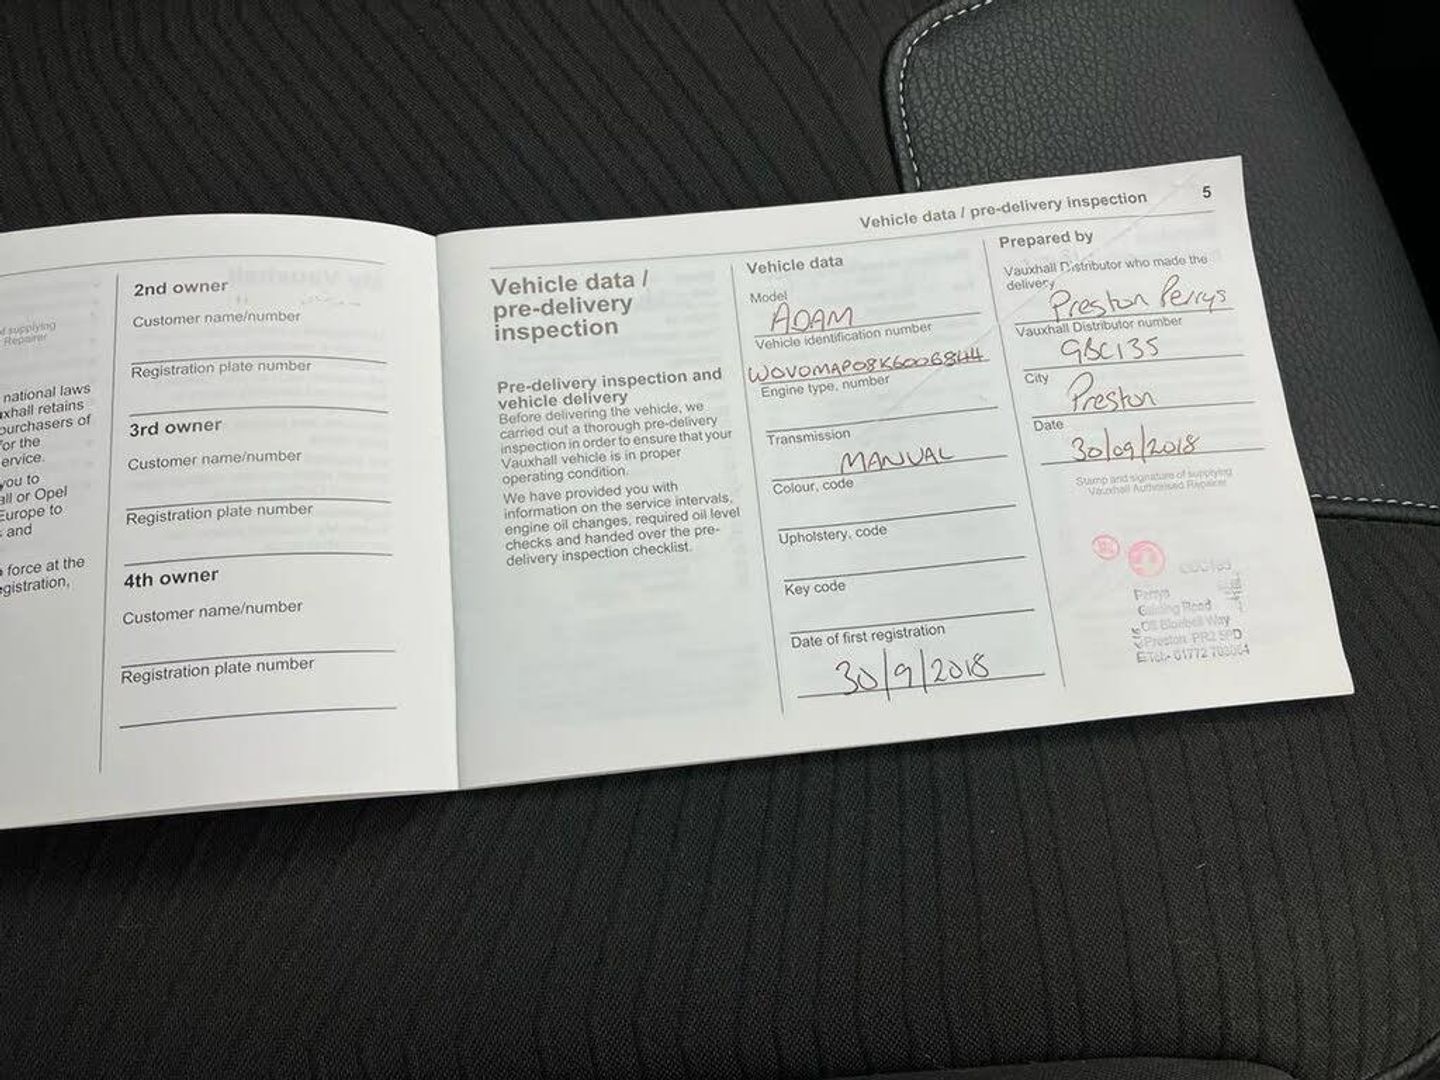 d supplying
Repairer
national laws
uxhall retains
purchasers of
for the
ervice.
you to
all or Opel
Europe to
and
force at the
egistration,
2nd owner
Customer name/number
Registration plate number
3rd owner
Customer name/number
Registration plate number
4th owner
Customer name/number
Registration plate number
Vehicle data / pre-delivery inspection
5
Vehicle data /
pre-delivery
inspection
Pre-delivery inspection and
vehicle delivery
Before delivering the vehicle, we
carried out a thorough pre-delivery
inspection in order to ensure that your
Vauxhall vehicle is in proper
operating condition.
We have provided you with
information on the service intervals,
engine oil changes, required oil level
checks and handed over the pre-
delivery inspection checklist.
Vehicle data
Model
ADAM
Vehicle identification number
WOVOMAP08K6006844
Engine type, number
Transmission
MANUAL
Colour, code
Upholstery, code
Key code
Date of first registration
30/9/2018
Prepared by
Vauxhall Distributor who made the
delivery
Preston Perrys
Vauxhall Distributor number
GBC135
City
Preston
Date
30/09/2018
Stamp and signature of supplying
Vauxhall Authorised Repairer
Perrys
Road
Bluebell Way
Preston PR2 5PD
Tel:- 01772